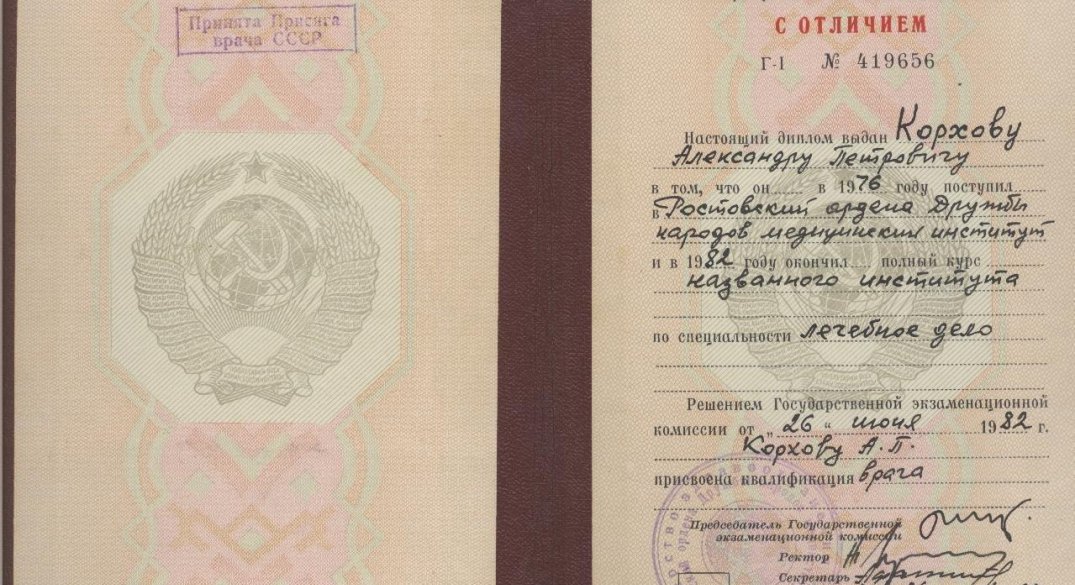 Принята Присяга
врача СССР
С ОТЛИЧИЕМ
Г-I № 419656
Настоящий диплом выдан Корхову
Александру Петровичу
в том, что он в 1976 году поступил
в Ростовский ордена Дружбы
народов медицинский институт
и в 1982 году окончил полный курс
названного института
по специальности лечебное дело
Решением Государственной экзаменационной
комиссии от „26“ июня 1982 г.
Корхову А.П.
присвоена квалификация врача
Председатель Государственной
экзаменационной комиссии
Ректор
Секретарь